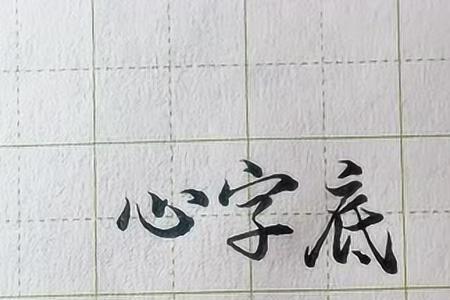 心字底